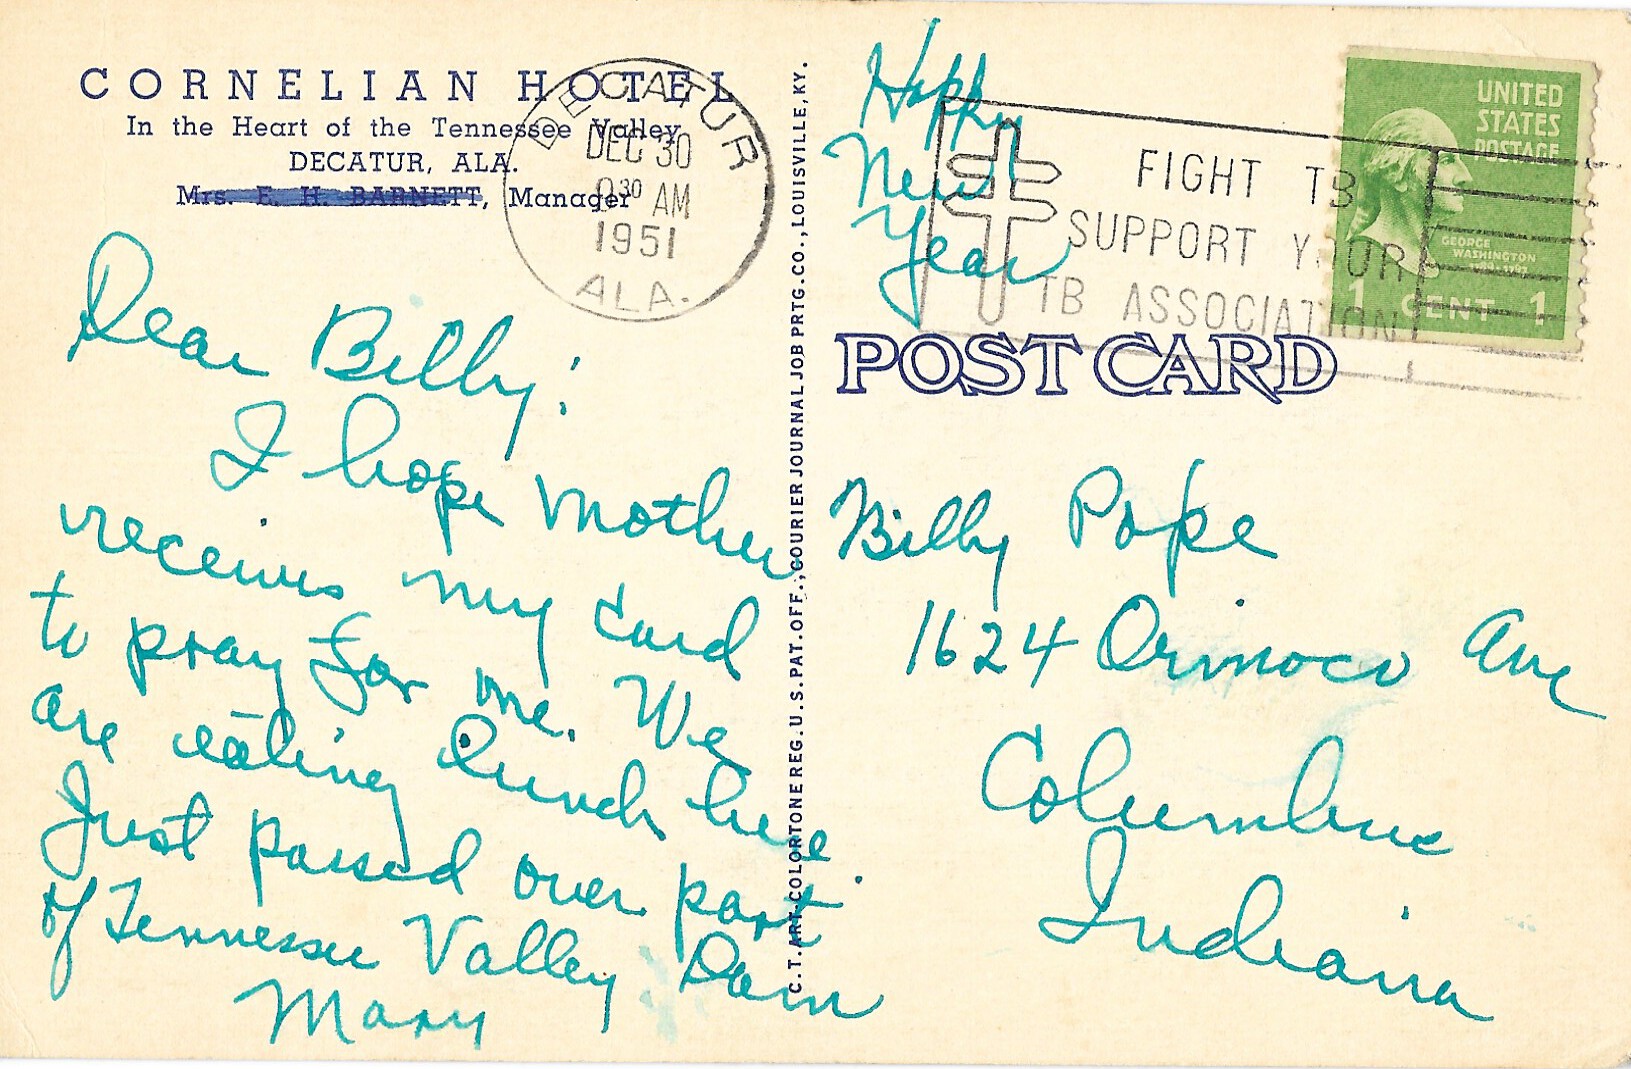 CORNELIAN HOTEL
In the Heart of the Tennessee Valley
DECATUR, ALA.
Mrs. E. H. BARNETT, Manager
DECATUR
DEC 30
30 AM
1951
ALA.
Dear Billy:
I hope mother
receives my card
to pray for me. We
are eating lunch here
Just passed over part
of Tennessee Valley Dam
Mary
C.T. ART-COLORTONE REG. U.S. PAT. OFF.; COURIER JOURNAL JOB PRTG. CO., LOUISVILLE, KY.
Happy
New
Year
FIGHT TB
SUPPORT YOUR
TB ASSOCIATION
UNITED
STATES
POSTAGE
GEORGE
WASHINGTON
1 CENT 1
POST CARD
Billy Pope
1624 Orinoco Ave
Columbus
Indiana